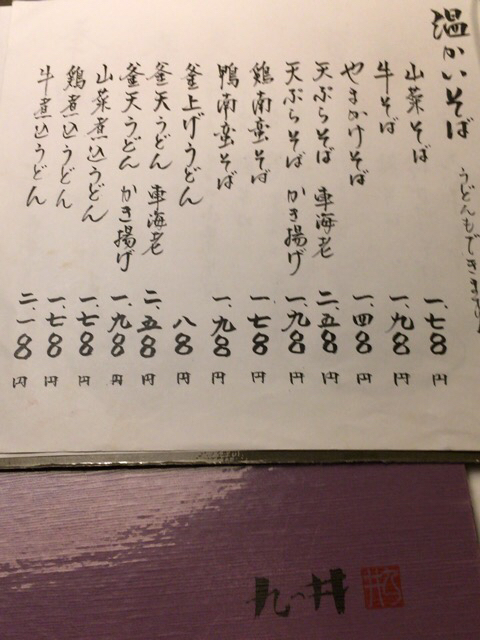 温かいそば うどんもできます
山菜そば 一、七〇〇円
牛そば 一、九〇〇円
やまかけそば 一、四〇〇円
天ぷらそば 車海老 二、五〇〇円
天ぷらそば かき揚げ 一、九〇〇円
鶏南蛮そば 一、七〇〇円
鴨南蛮そば 一、九〇〇円
釜上げうどん 八〇〇円
釜天うどん 車海老 二、五〇〇円
釜天うどん かき揚げ 一、九〇〇円
山菜煮込うどん 一、七〇〇円
鶏煮込うどん 一、七〇〇円
牛煮込うどん 二、一〇〇円
九つ井